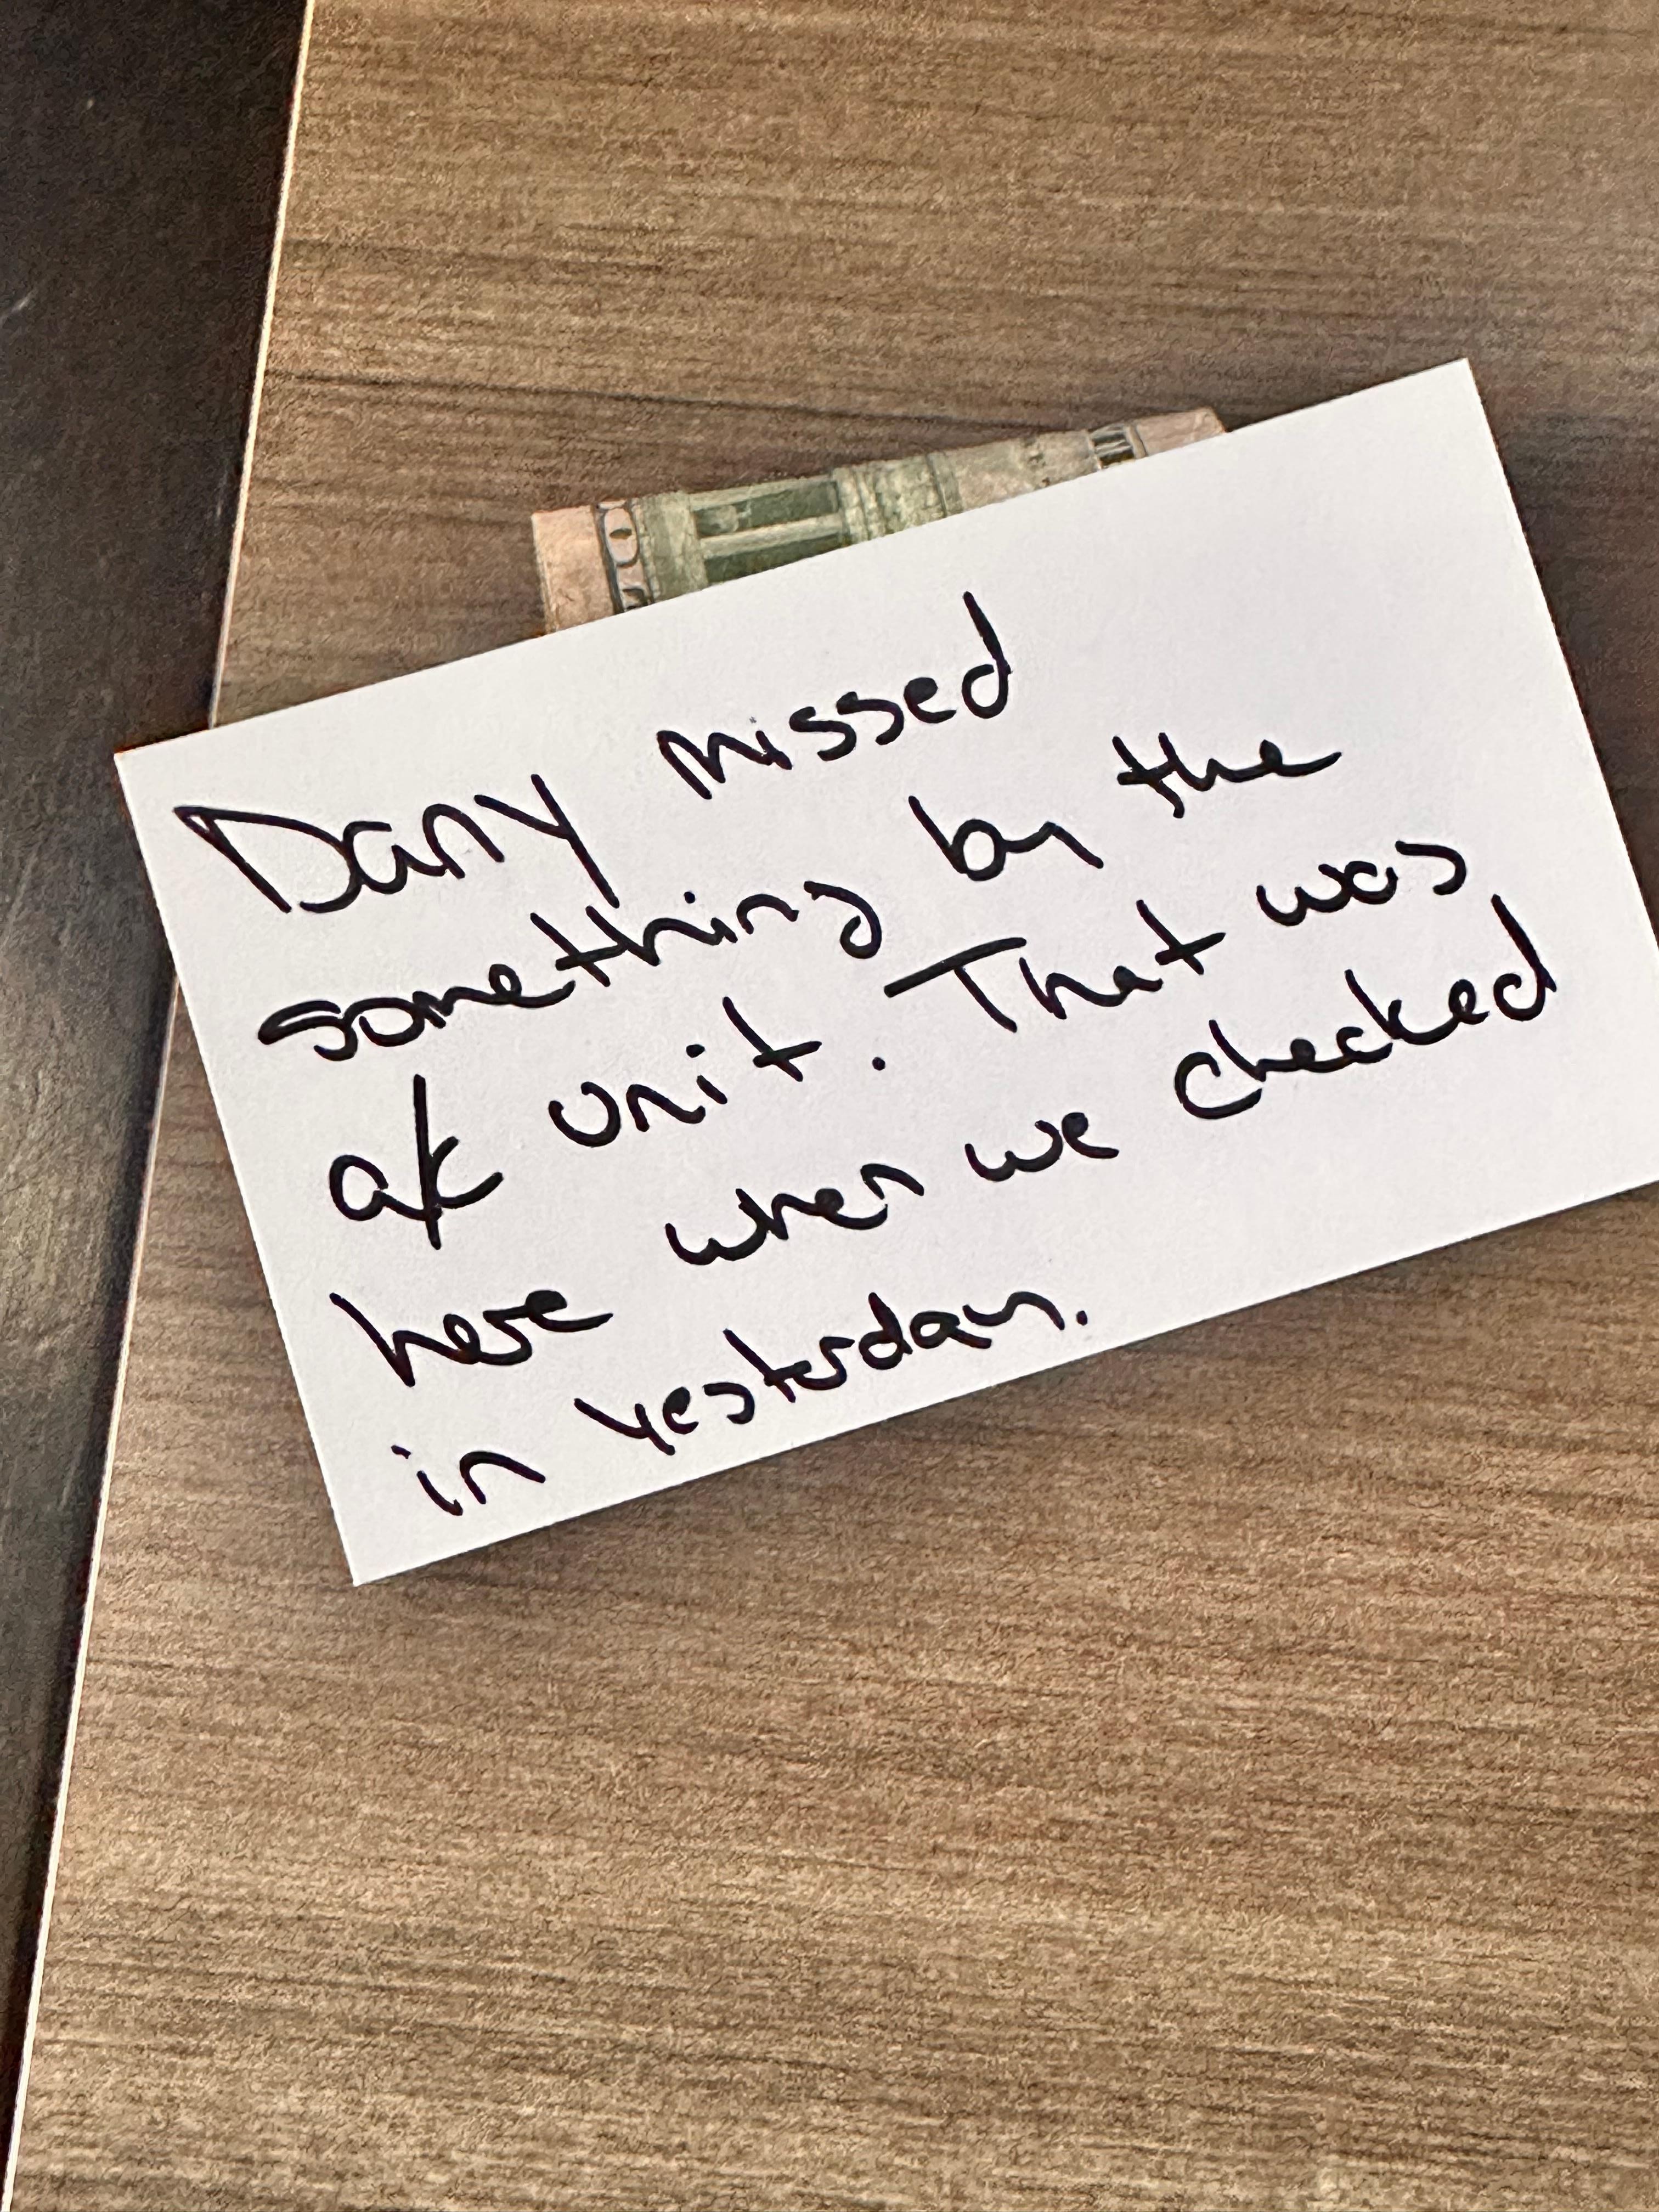 Dany missed
something by the
a/c unit. That was
here when we checked
in yesterday.